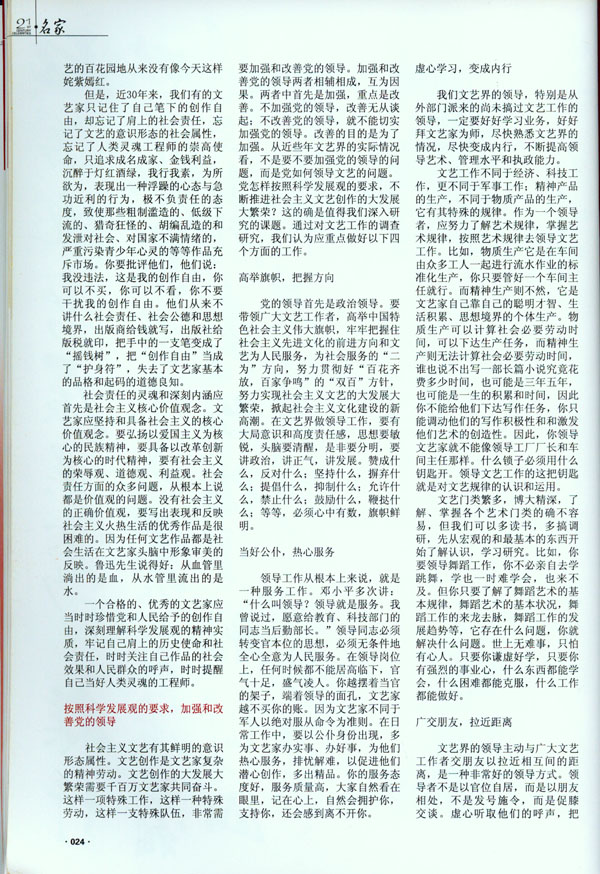 21
名家
艺的百花园地从来没有像今天这样
姹紫嫣红。
但是，近30年来，我们有的文
艺家只记住了自己笔下的创作自
由，却忘记了肩上的社会责任，忘
记了文艺的意识形态的社会属性，
忘记了人类灵魂工程师的崇高使
命，只追求成名成家、金钱利益，
沉醉于灯红酒绿，我行我素，为所
欲为，表现出一种浮躁的心态与急
功近利的行为，极不负责任的态
度，致使那些粗制滥造的、低级下
流的、猎奇狂怪的、胡编乱造的和
发泄对社会、对国家不满情绪的，
严重污染青少年心灵的等等作品充
斥市场。你要批评他们，他们说：
我没违法，这是我的创作自由，你
可以不买，你可以不看，你不要
干扰我的创作自由。他们从来不
讲什么社会责任、社会公德和思想
境界，出版商给钱就写，出版社给
版税就印，把手中的一支笔变成了
“摇钱树”，把“创作自由”当成
了“护身符”，失去了文艺家基本
的品格和起码的道德良知。
社会责任的灵魂和深刻内涵应
首先是社会主义核心价值观念。文
艺家应坚持和具备社会主义的核心
价值观念。要弘扬以爱国主义为核
心的民族精神，要具备以改革创新
为核心的时代精神，要有社会主义
的荣辱观、道德观、利益观。社会
责任方面的众多问题，从根本上说
都是价值观的问题。没有社会主义
的正确价值观，要写出表现和反映
社会主义火热生活的优秀作品是很
困难的。因为任何文艺作品都是社
会生活在文艺家头脑中形象审美的
反映。鲁迅先生说得好：从血管里
淌出的是血，从水管里流出的是
水。
一个合格的、优秀的文艺家应
当时时珍惜党和人民给予的创作自
由，深刻理解科学发展观的精神实
质，牢记自己肩上的历史使命和社
会责任，时时关注自己作品的社会
效果和人民群众的呼声，时时提醒
自己当好人类灵魂的工程师。
按照科学发展观的要求，加强和改
善党的领导
社会主义文艺有其鲜明的意识
形态属性。文艺创作是文艺家复杂
的精神劳动。文艺创作的大发展大
繁荣需要千百万文艺家共同奋斗。
这样一项特殊工作，这样一种特殊
劳动，这样一支特殊队伍，非常需
要加强和改善党的领导。加强和改
善党的领导两者相辅相成，互为因
果。两者中首先是加强，重点是改
善。不加强党的领导，改善无从谈
起；不改善党的领导，就不能切实
加强党的领导。改善的目的是为了
加强。从近些年文艺界的实际情况
看，不是要不要加强党的领导的问
题，而是党如何领导文艺的问题。
党怎样按照科学发展观的要求，不
断推进社会主义文艺创作的大发展
大繁荣？这的确是值得我们深入研
究的课题。通过对文艺工作的调查
研究，我们认为应重点做好以下四
个方面的工作。
高举旗帜，把握方向
党的领导首先是政治领导。要
带领广大文艺工作者，高举中国特
色社会主义伟大旗帜，牢牢把握住
社会主义先进文化的前进方向和文
艺为人民服务，为社会服务的“二
为”方向，努力贯彻好“百花齐
放，百家争鸣”的“双百”方针，
努力实现社会主义文艺的大发展大
繁荣，掀起社会主义文化建设的新
高潮。在文艺界做领导工作，要有
大局意识和高度责任感，思想要敏
锐，头脑要清醒，是非要分明，要
讲政治，讲正气，讲发展。赞成什
么，反对什么；坚持什么，摒弃什
么；提倡什么，抑制什么；允许什
么，禁止什么；鼓励什么，鞭挞什
么；等等，必须心中有数，旗帜鲜
明。
当好公仆，热心服务
领导工作从根本上来说，就是
一种服务工作。邓小平多次讲：
“什么叫领导？领导就是服务。我
曾说过，愿意给教育、科技部门的
同志当后勤部长。”领导同志必须
转变官本位的思想，必须无条件地
全心全意为人民服务。在领导岗位
上，任何时候都不能居高临下，官
气十足，盛气凌人。你越摆着当官
的架子，端着领导的面孔，文艺家
越不买你的账。因为文艺家不同于
军人以绝对服从命令为准则。在日
常工作中，要以公仆身份出现，多
为文艺家办实事、办好事，为他们
热心服务，排忧解难，以促进他们
潜心创作，多出精品。你的服务态
度好，服务质量高，大家自然看在
眼里，记在心上，自然会拥护你，
支持你，还会感到离不开你。
虚心学习，变成内行
我们文艺界的领导，特别是从
外部门派来的尚未搞过文艺工作的
领导，一定要好好学习业务，好好
拜文艺家为师，尽快熟悉文艺界的
情况，尽快变成内行，不断提高领
导艺术、管理水平和执政能力。
文艺工作不同于经济、科技工
作，更不同于军事工作；精神产品
的生产，不同于物质产品的生产，
它有其特殊的规律。作为一个领导
者，应努力了解艺术规律，掌握艺
术规律，按照艺术规律去领导文艺
工作。比如，物质生产它是在车间
由众多工人一起进行流水作业的标
准化生产，你只要管好一个车间主
任就行。而精神生产则不然，它是
文艺家自己靠自己的聪明才智、生
活积累、思想境界的个体生产。物
质生产可以计算社会必要劳动时
间，可以下达生产任务，而精神生
产则无法计算社会必要劳动时间，
谁也说不出写一部长篇小说究竟花
费多少时间，也可能是三年五年，
也可能是一生的积累和时间，因此
你不能给他们下达写作任务，你只
能调动他们的写作积极性和和激发
他们艺术的创造性。因此，你领导
文艺家就不能像领导工厂厂长和车
间主任那样。什么锁子必须用什么
钥匙开。领导文艺工作的这把钥匙
就是对文艺规律的认识和运用。
文艺门类繁多，博大精深，了
解、掌握各个艺术门类的确不容
易，但我们可以多读书，多搞调
研，先从宏观的和最基本的东西开
始了解认识，学习研究。比如，你
要领导舞蹈工作，你不必亲自去学
跳舞，学也一时难学会，也来不
及。但你只要了解了舞蹈艺术的基
本规律，舞蹈艺术的基本状况，舞
蹈工作的来龙去脉，舞蹈工作的发
展趋势等，它存在什么问题，你就
解决什么问题。世上无难事，只怕
有心人。只要你谦虚好学，只要你
有强烈的事业心，什么东西都能学
会，什么困难都能克服，什么工作
都能做好。
广交朋友，拉近距离
文艺界的领导主动与广大文艺
工作者交朋友以拉近相互间的距
离，是一种非常好的领导方式。领
导者不是以官位自居，而是以朋友
相处，不是发号施令，而是促膝
交谈。虚心听取他们的呼声，把
·024·